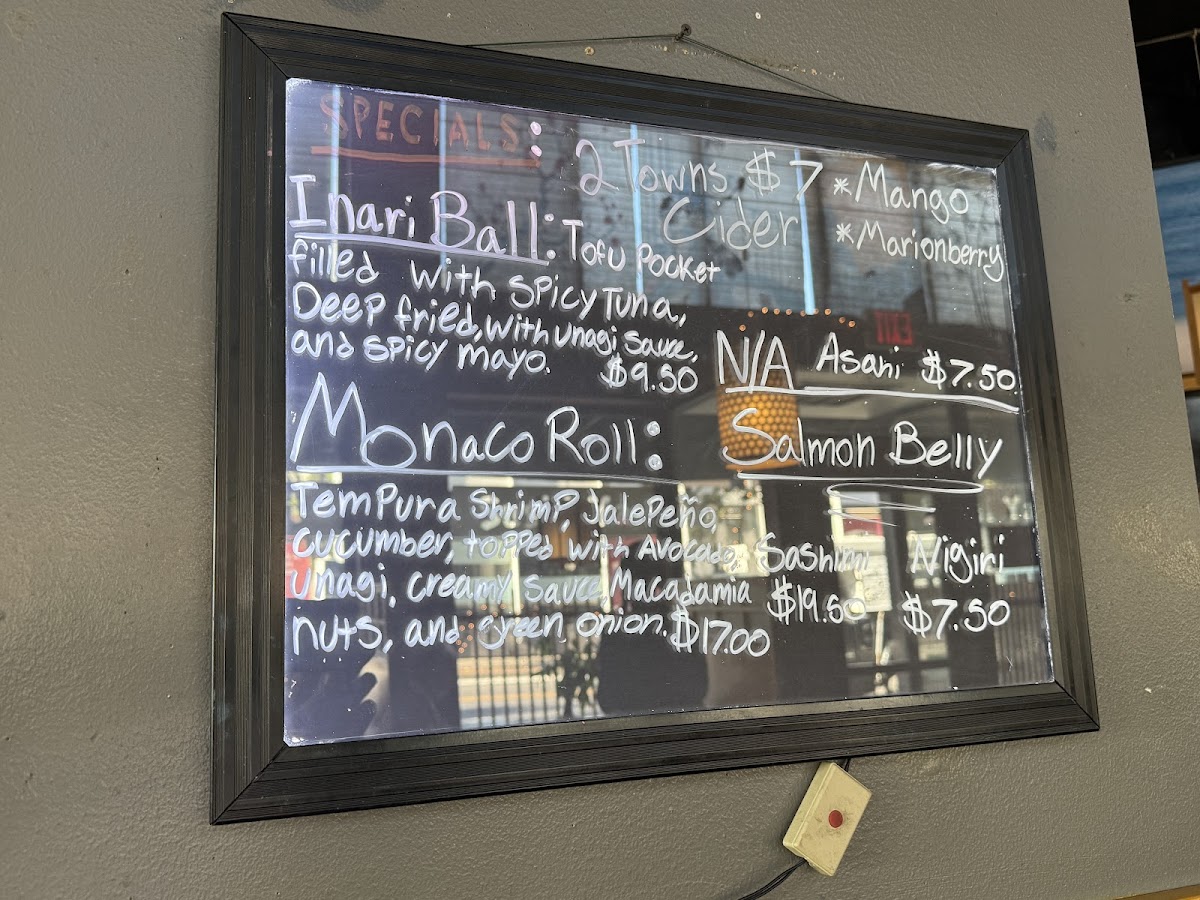 SPECIALS:
2 Towns $7
Cider
*Mango
*Marionberry
Inari Ball: Tofu Pocket
filled with spicy Tuna,
Deep fried, with unagi sauce,
and spicy mayo. $9.50
N/A Asahi $7.50
Monaco Roll:
Tempura Shrimp, Jalepeño,
cucumber, topped with Avocado,
unagi, creamy sauce, Macadamia
nuts, and green onion. $17.00
Salmon Belly
Sashimi Nigiri
$19.50 $7.50
EXIT